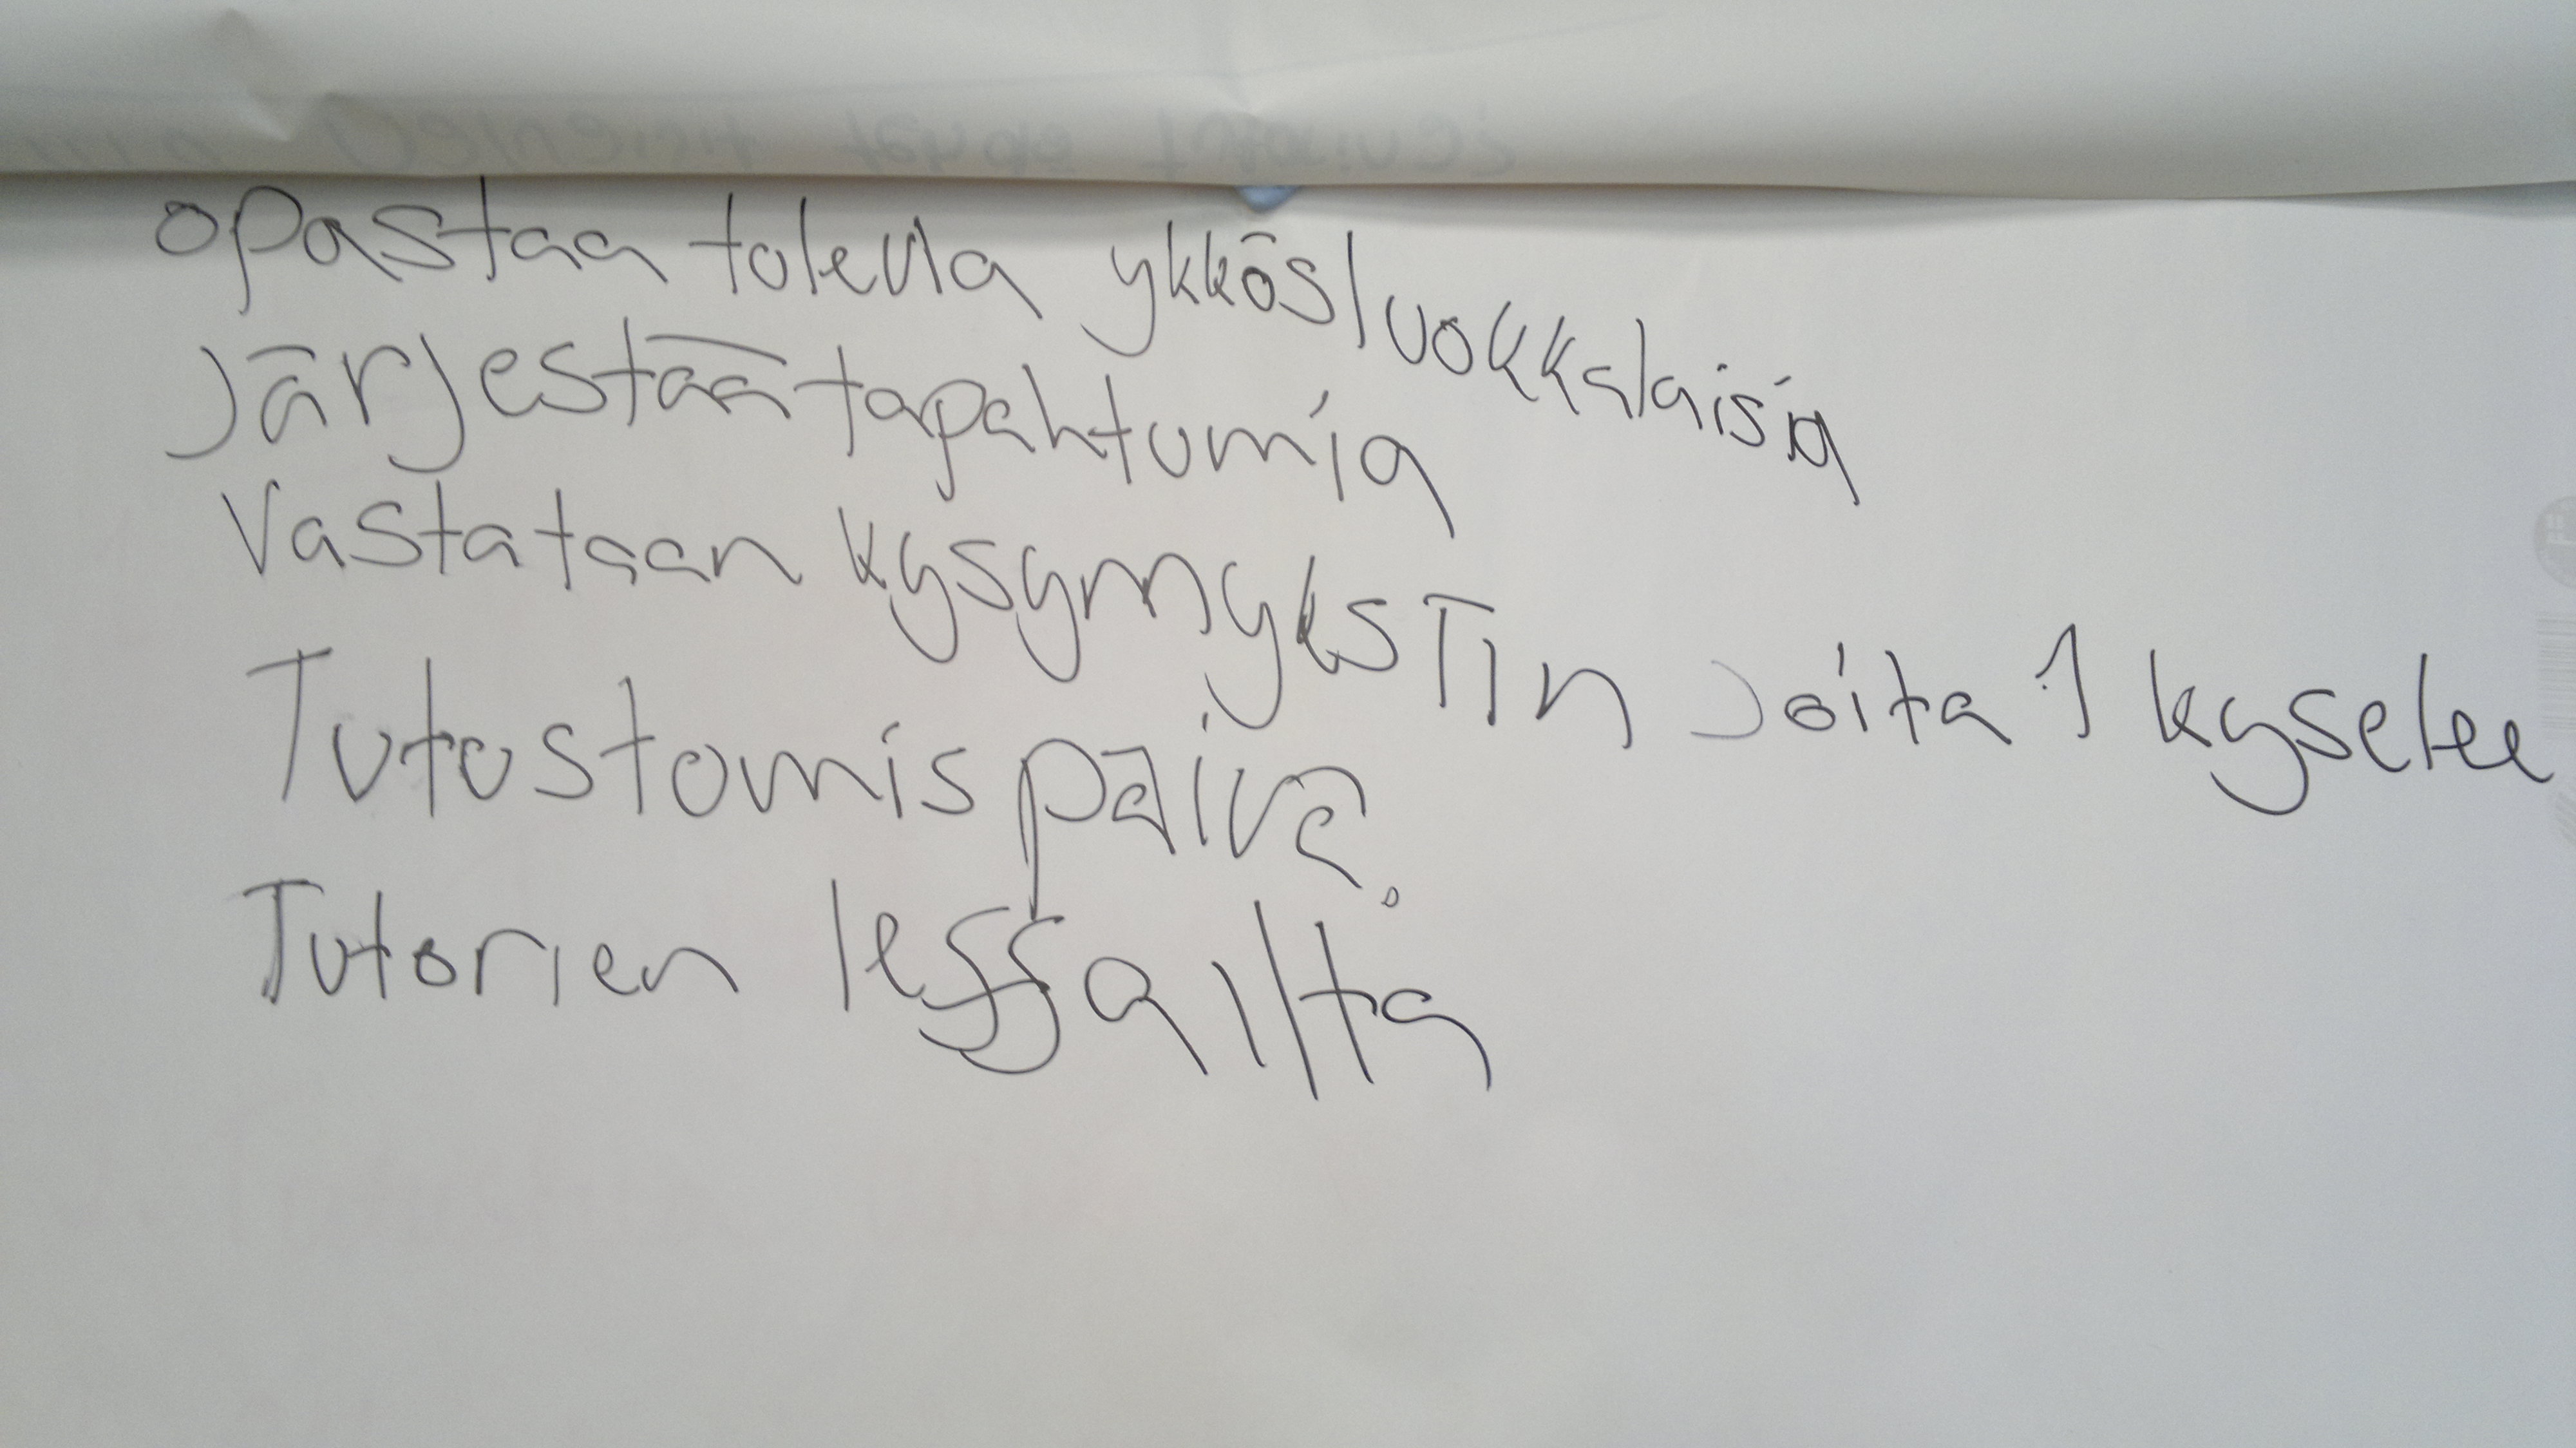 opastaa tulevia ykkösluokkalaisia
järjestää tapahtumia
Vastataan kysymyksTin joita 1 kyselee
Tutustumispäivä.
Tutorien leffa ilta